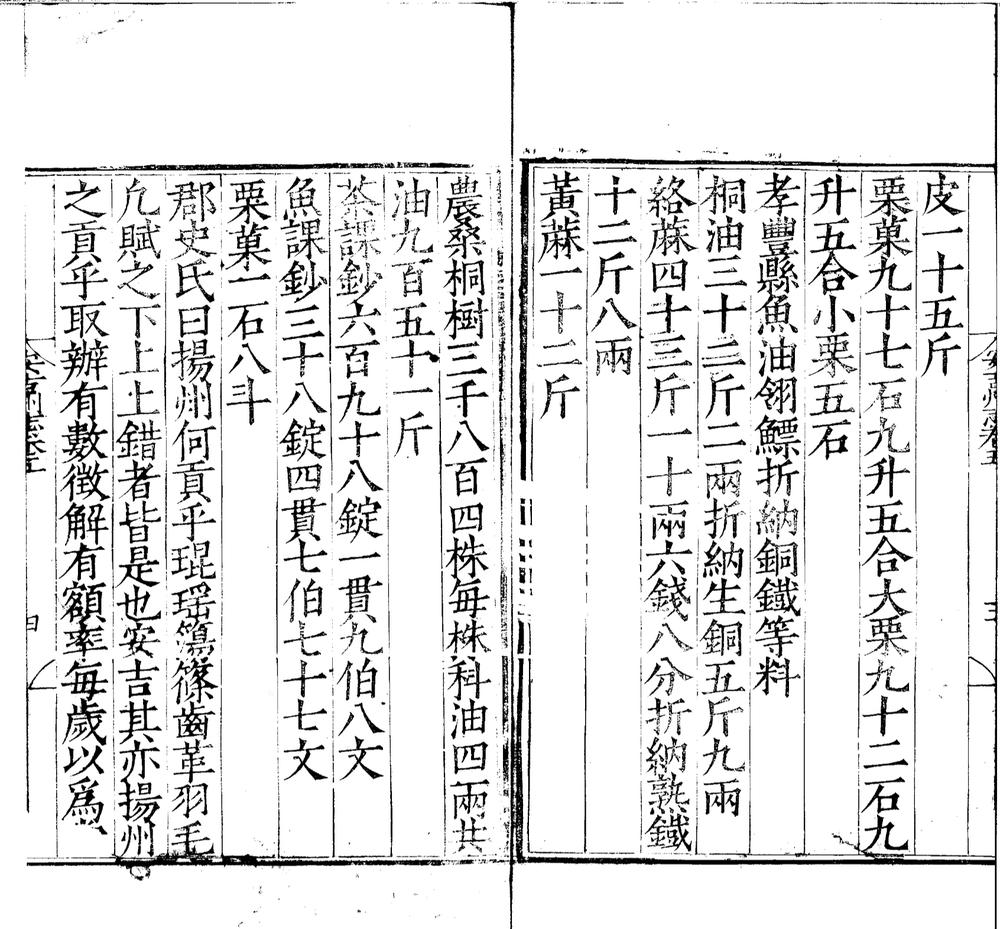 皮一十五斤
栗菓九十七石九升五合大栗九十二石九
升五合小栗五石
孝豐縣魚油翎鰾折納銅鐵等料
桐油三十二斤二兩折納生銅五斤九兩
絡蔴四十三斤一十兩六錢八分折納熟鐵
十二斤八兩
黃蔴一十二斤
農桑桐樹三千八百四株每株科油四兩共
油九百五十一斤
茶課鈔六百九十八錠一貫九伯八文
魚課鈔三十八錠四貫七伯七十七文
栗菓一石八斗
郡史氏曰揚州何貢乎琨瑶篠簜齒革羽毛
凢賦之下上上錯者皆是也安吉其亦揚州
之貢乎取辦有數徵解有額率每歲以爲
安吉州志卷五
四